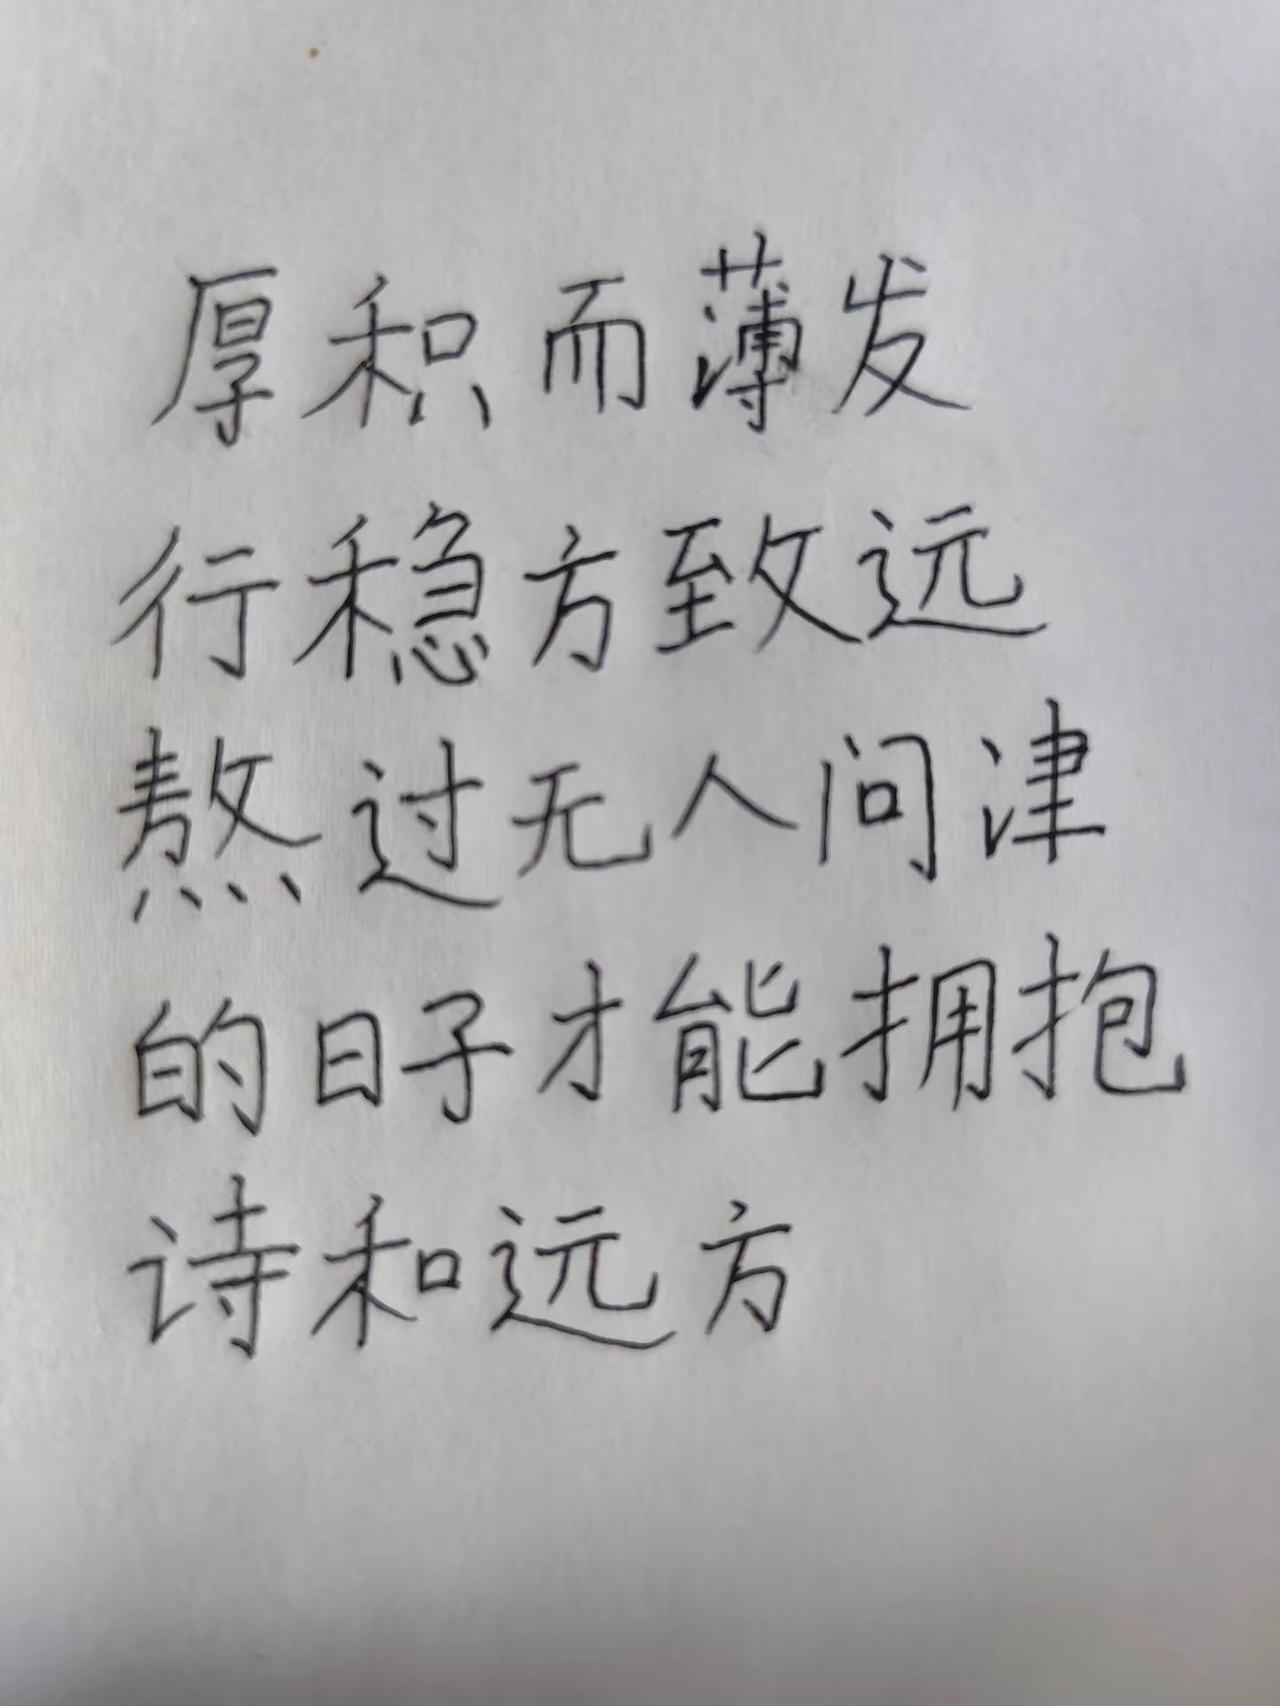 厚积而薄发
行稳方致远
熬过无人问津
的日子才能拥抱
诗和远方